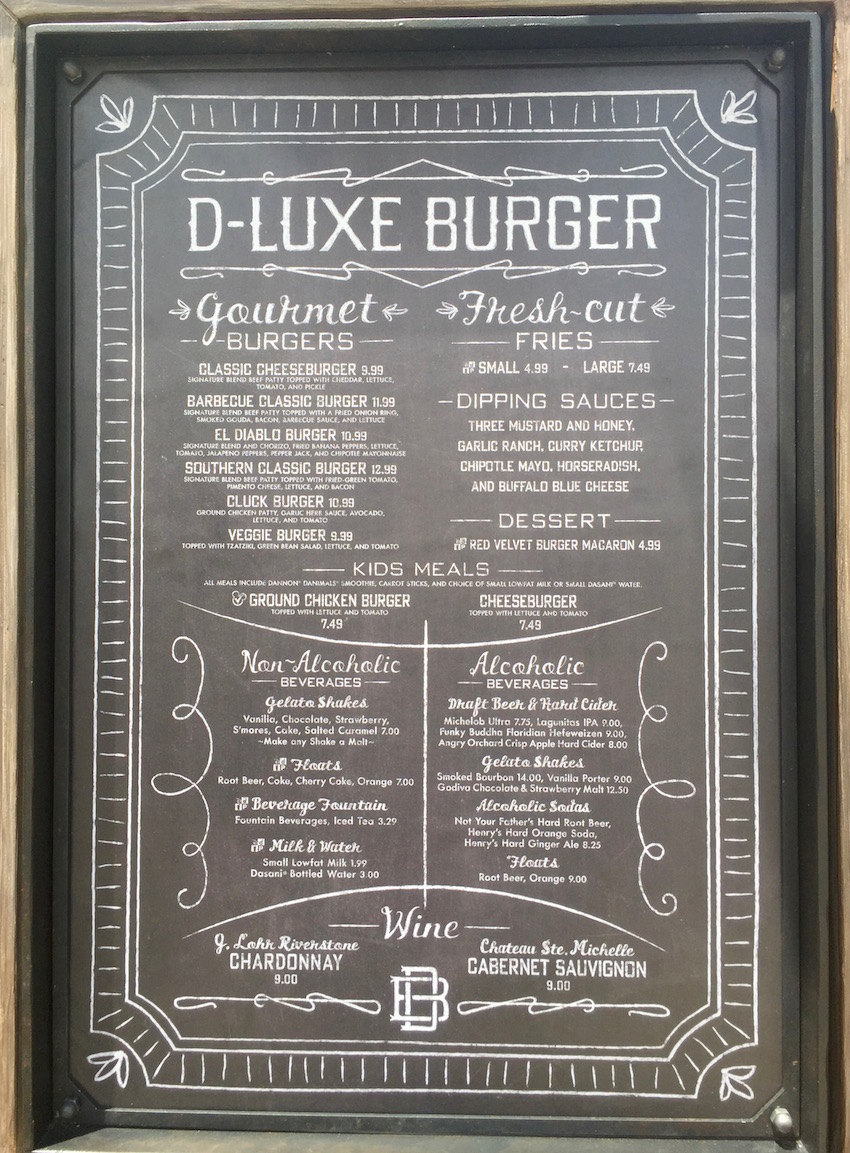 D-LUXE BURGER
Gourmet
BURGERS
CLASSIC CHEESEBURGER 9.99
SIGNATURE BLEND BEEF PATTY TOPPED WITH CHEDDAR, LETTUCE,
TOMATO, AND PICKLE
BARBECUE CLASSIC BURGER 11.99
SIGNATURE BLEND BEEF PATTY TOPPED WITH A FRIED ONION RING,
SMOKED GOUDA, BACON, BARBECUE SAUCE, AND LETTUCE
EL DIABLO BURGER 10.99
SIGNATURE BLEND AND CHORIZO, FRIED BANANA PEPPERS, LETTUCE,
TOMATO, JALAPENO PEPPERS, PEPPER JACK, AND CHIPOTLE MAYONNAISE
SOUTHERN CLASSIC BURGER 12.99
SIGNATURE BLEND BEEF PATTY TOPPED WITH FRIED-GREEN TOMATO,
PIMENTO CHEESE, LETTUCE, AND BACON
CLUCK BURGER 10.99
GROUND CHICKEN PATTY, GARLIC HERB SAUCE, AVOCADO,
LETTUCE, AND TOMATO
VEGGIE BURGER 9.99
TOPPED WITH TZATZIKI, GREEN BEAN SALAD, LETTUCE, AND TOMATO
Fresh-cut
FRIES
SMALL 4.99 - LARGE 7.49
DIPPING SAUCES
THREE MUSTARD AND HONEY,
GARLIC RANCH, CURRY KETCHUP,
CHIPOTLE MAYO, HORSERADISH,
AND BUFFALO BLUE CHEESE
DESSERT
RED VELVET BURGER MACARON 4.99
KIDS MEALS
ALL MEALS INCLUDE DANNON® DANIMALS® SMOOTHIE, CARROT STICKS, AND CHOICE OF SMALL LOWFAT MILK OR SMALL DASANI® WATER.
GROUND CHICKEN BURGER
TOPPED WITH LETTUCE AND TOMATO
7.49
CHEESEBURGER
TOPPED WITH LETTUCE AND TOMATO
7.49
Non-Alcoholic
BEVERAGES
Gelato Shakes
Vanilla, Chocolate, Strawberry,
S'mores, Coke, Salted Caramel 7.00
~Make any Shake a Malt~
Floats
Root Beer, Coke, Cherry Coke, Orange 7.00
Beverage Fountain
Fountain Beverages, Iced Tea 3.29
Milk & Water
Small Lowfat Milk 1.99
Dasani® Bottled Water 3.00
Alcoholic
BEVERAGES
Draft Beer & Hard Cider
Michelob Ultra 7.75, Lagunitas IPA 9.00,
Funky Buddha Floridian Hefeweizen 9.00,
Angry Orchard Crisp Apple Hard Cider 8.00
Gelato Shakes
Smoked Bourbon 14.00, Vanilla Porter 9.00
Godiva Chocolate & Strawberry Malt 12.50
Alcoholic Sodas
Not Your Father's Hard Root Beer,
Henry's Hard Orange Soda,
Henry's Hard Ginger Ale 8.25
Floats
Root Beer, Orange 9.00
Wine
J. Lohr Riverstone
CHARDONNAY
9.00
Chateau Ste. Michelle
CABERNET SAUVIGNON
9.00